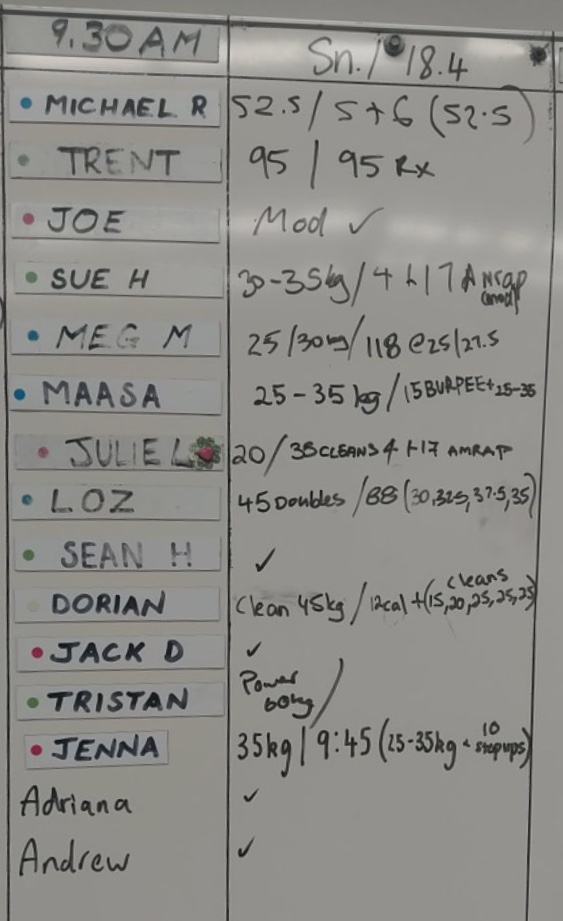 9.30AM
Sn./ 18.4
MICHAEL R 52.5 / 5+6 (52.5)
TRENT 95 / 95 Rx
JOE Mod ✓
SUE H 30-35kg / 4 + 17 Amrap
(mod)
MEG M 25/30kg / 118 @25/27.5
MAASA 25-35kg / 15 BURPEE+25-35
JULIE L 20 / 35 CLEANS 4 +17 AMRAP
LOZ 45 Doubles / 88 (30,32.5,37.5,35)
SEAN H ✓
cleans
DORIAN Clean 45kg / 12cal + (15,20,25,25,25)
JACK D ✓
TRISTAN Power /
60kg
10
JENNA 35kg / 9:45 (25-35kg + stepups)
Adriana ✓
Andrew ✓